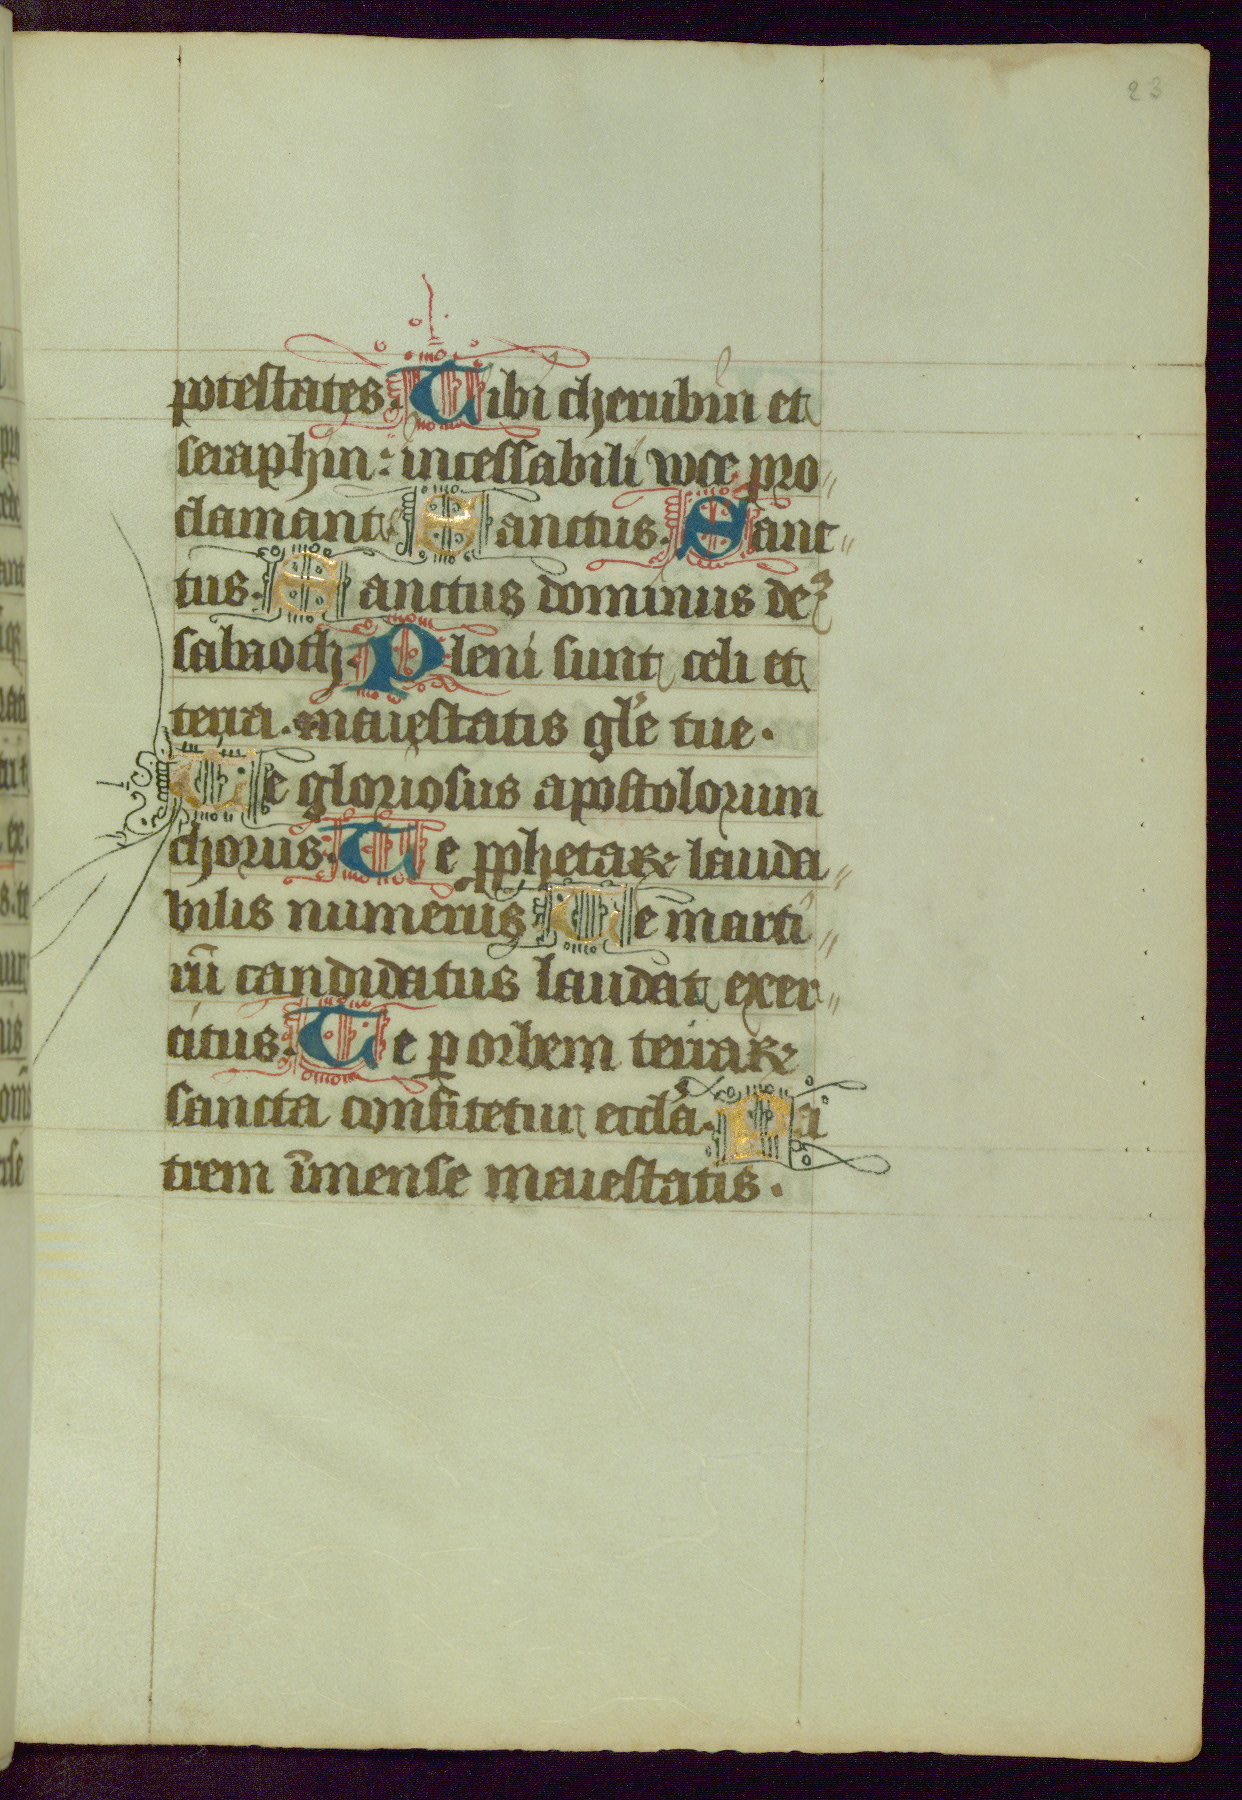 23
potestates. Tibi cherubin et
seraphin: incessabili voce pro„
clamant Sanctus. Sanc„
tus. Sanctus dominus deꝰ
sabaoth. Pleni sunt celi et
terra. maiestatis gl'e tue.
Te gloriosus apostolorum
chorus. Te ꝓphetaꝝ lauda„
bilis numerus. Te marti„
rū candidatus laudat exer„
citus. Te ꝑ orbem terraꝝ
sancta confitetur eccl'a. Pa
trem īmense maiestatis.